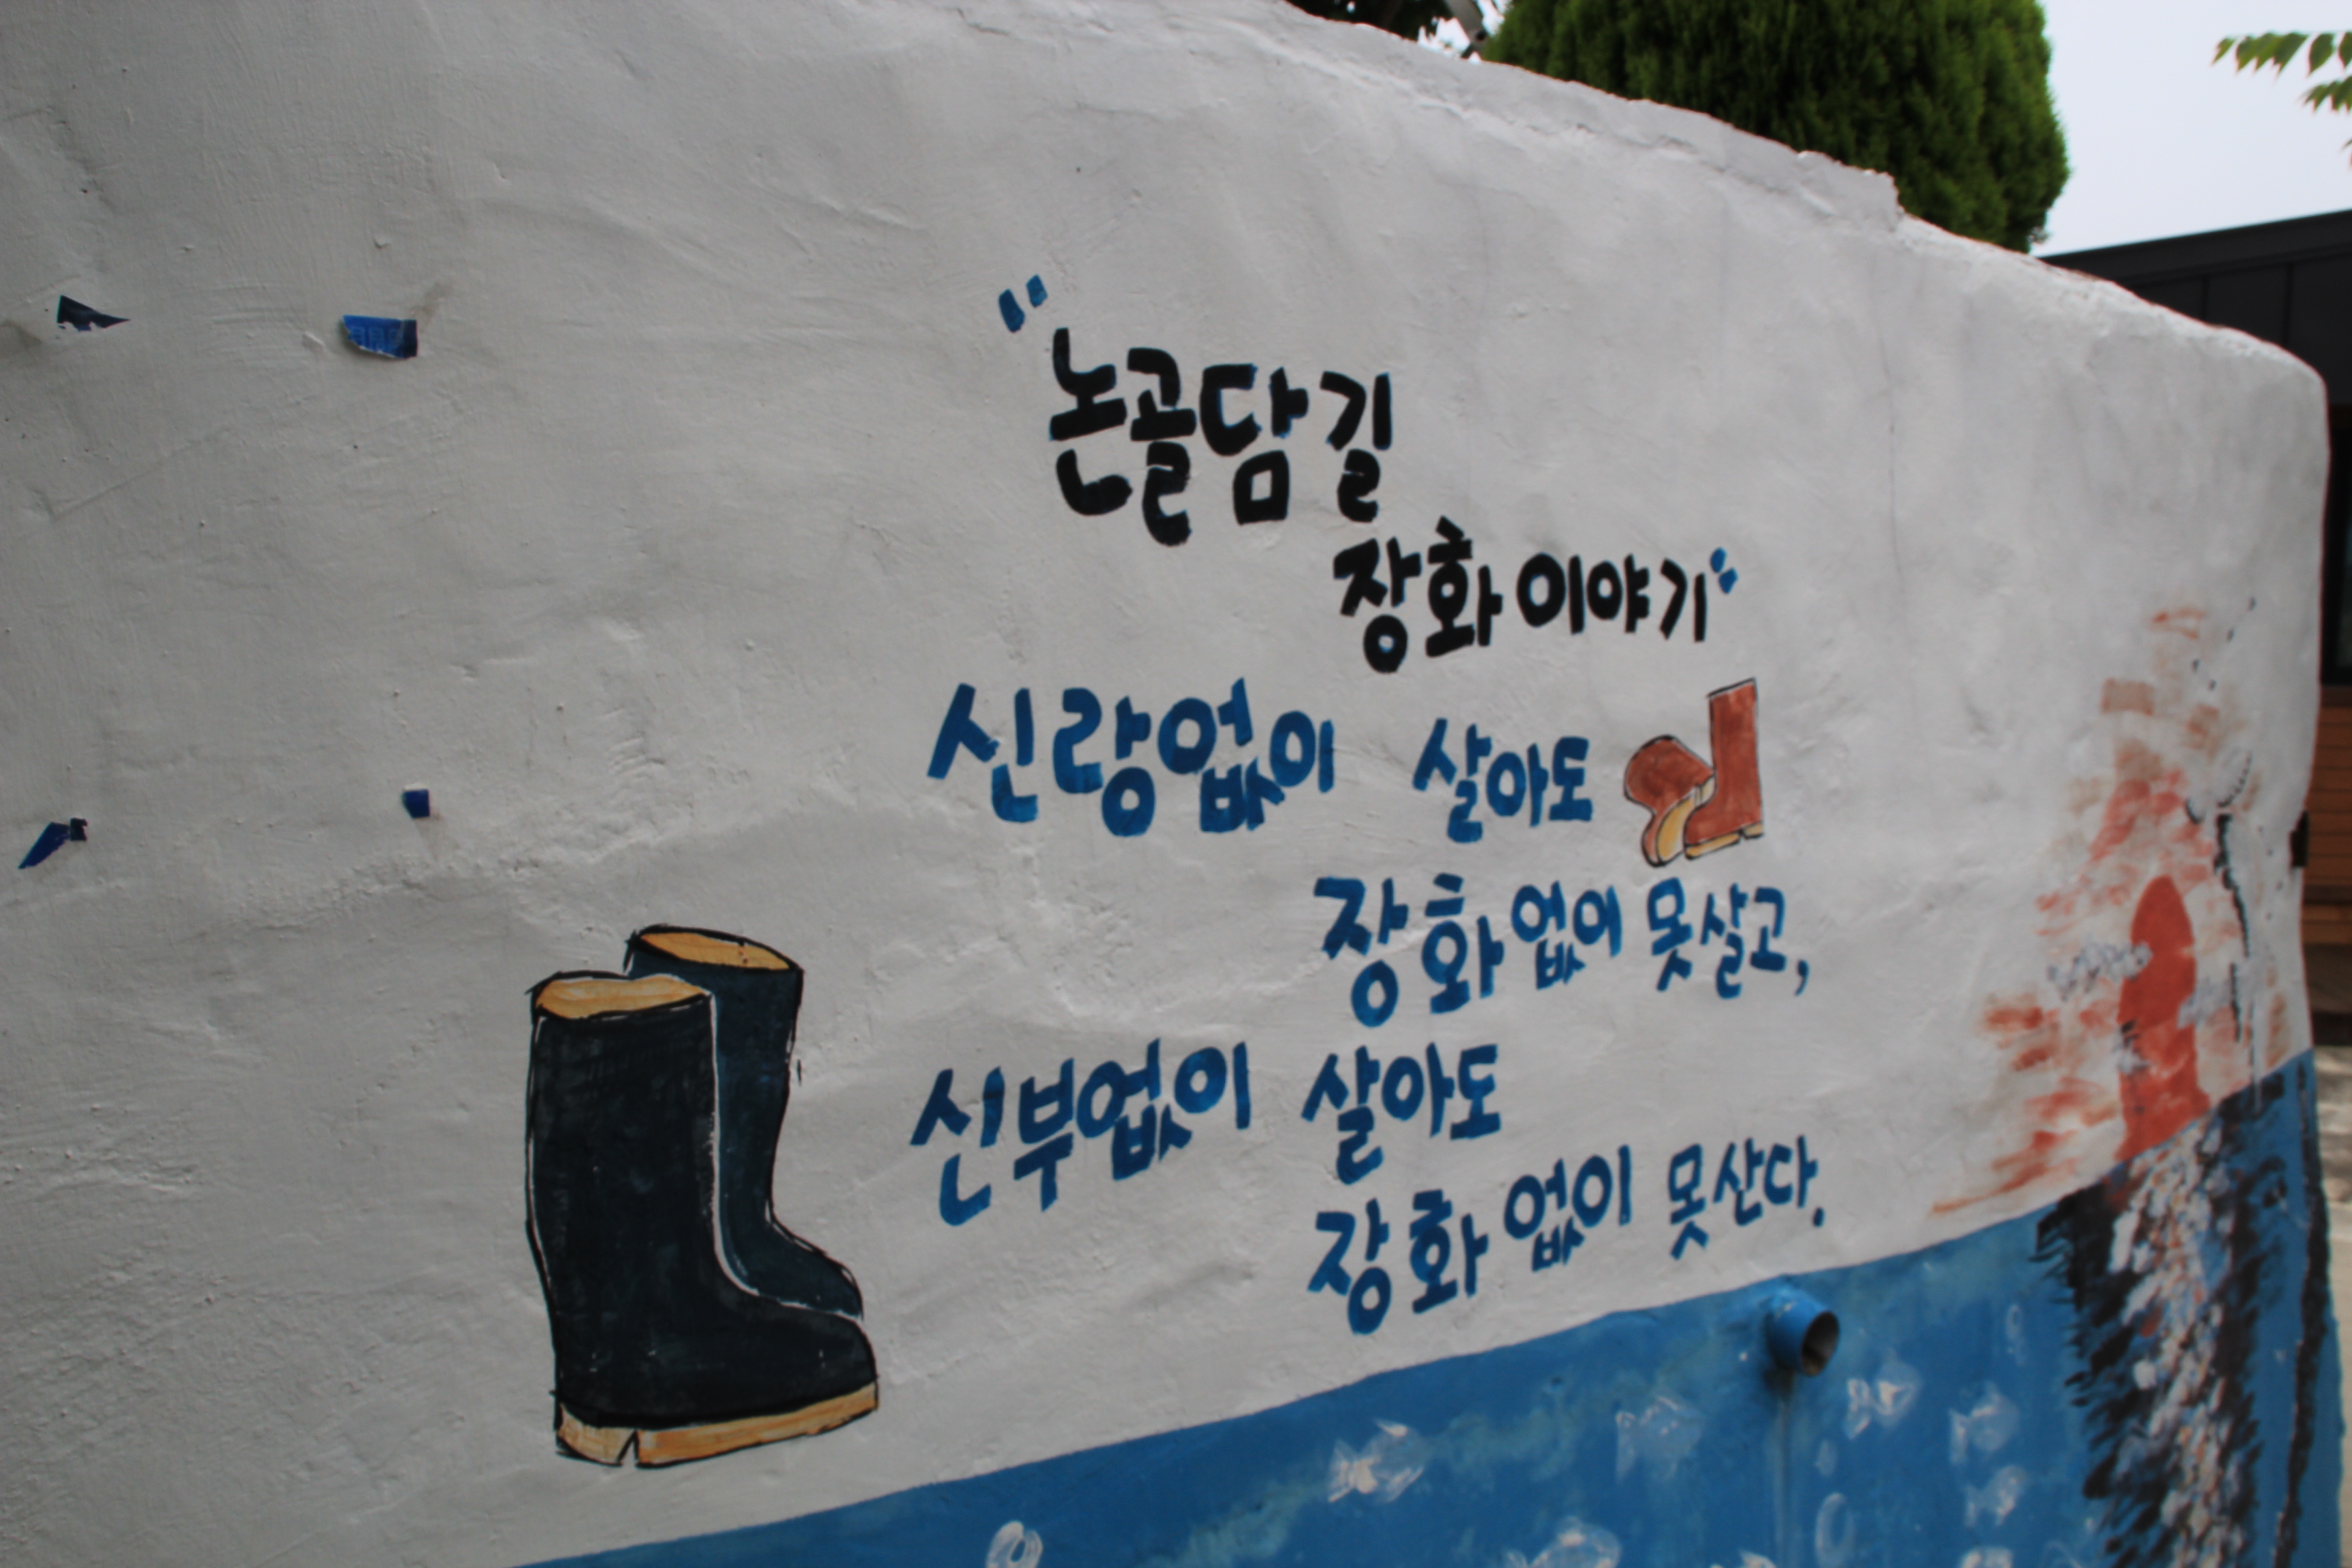 "논골담길
장화이야기"
신랑없이 살아도
장화없이 못살고,
신부없이 살아도
장화없이 못산다.